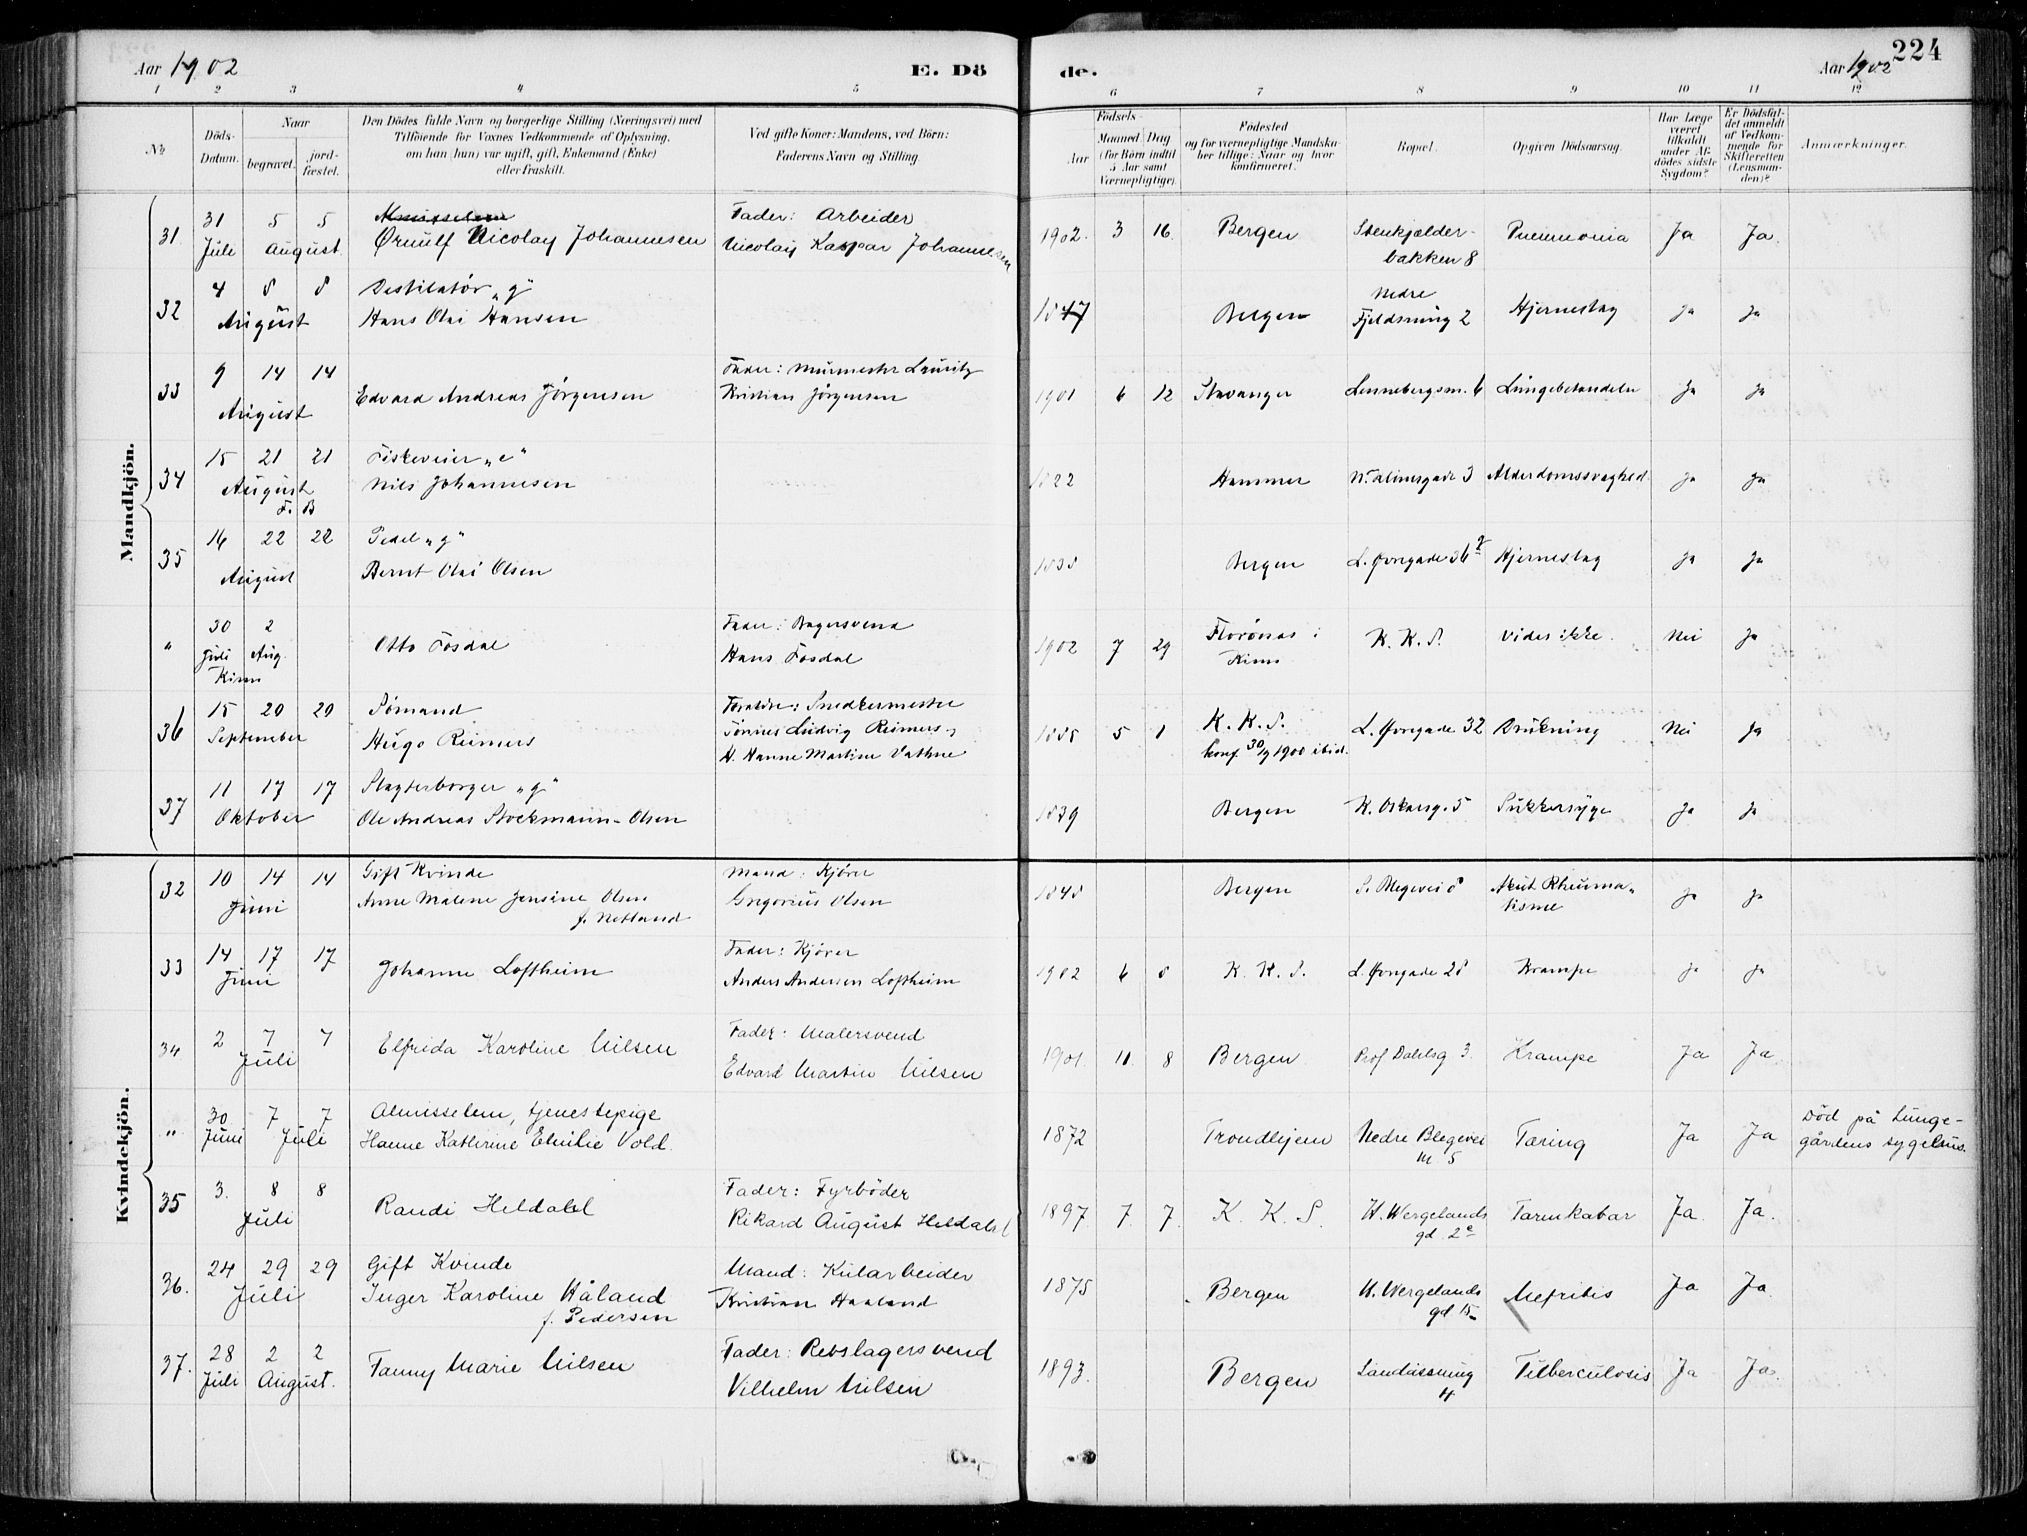 Aar 1902
E. Dö
de.
Aar 1902
224
1 2 3 4 5 6 7 8 9 10 11 12
No
Döds-
Datum.
Naar
begravet.
jord-
fæstet.
Den Dödes fulde Navn og borgerlige Stilling (Næringsvei) med
Tilföiende for Voxnes Vedkommende af Oplysning,
om han (hun) var ugift, gift, Enkemand (Enke)
eller fraskilt.
Ved gifte Koner: Mandens, ved Börn:
Faderens Navn og Stilling.
Födsels-
Aar
Maaned
Dag
(for Börn indtil
5 Aar samt
Værnepligtige).
Födested
og for værnepligtige Mandska-
ber tillige: Naar og hvor
konfirmeret.
Bopæl.
Opgiven Dödsaarsag.
Har Læge
været
tilkaldt
under Af-
dödes sidste
Sygdom?
Er Dödsfal-
det anmeldt
af Vedkom-
mende for
Skifteretten
(Lensman-
den)?
Anmærkninger.
Mandkjön.
31. 31 Juli 5 5 August
Ørnulf Nicolay Johannesen
Fader: Arbeider
Nicolay Kaspar Johannesen
1902. 3 16. Bergen
Stenkjælder-
bakken 8
Pneumonia Ja Ja.
32 4 8 8 August
Destilatør "g"
Hans Olai Hansen
1847 Bergen
Nedre
Fjeldsmug 2
Hjerneslag Ja Ja
33 9 14 14 August
Edvard Andreas Jørgensen
Fader: Murmester Lauritz
Kristian Jørgensen
1901 6 12 Stavanger Lennebergsm. 6 Lungebetændelse Ja Ja
34 15 21 21 August
F. B
Fiskeveier "e"
Nils Johannesen
1822 Hammer 3 Alderdomssvaghed Ja Ja
35 16 22 22 August
Pedel "g"
Bernt Olai Olsen
1838 Bergen L. Øvregade 36 Hjerneslag Ja Ja
" 30 Juli 2 Aug.
Kinn
Otto Fosdal
Fader: Bagersvend
Hans Fosdal
1902 7 29 Florønas i
Kinn
K. K. S. Vides ikke. Nei Ja
36 15 20 20 September
Sømand
Hugo Reimers
Forældre: Snedkermester
Tønnes Ludvig Reimers,
H. Hanne Martine Vathne
1885 5 1 K. K. S.
konf. 30/9 1900 ibid.
L. Øvregade 32 Drukning Nei Ja
37 11 17 17 Oktober
Slagterborger "g"
Ole Andreas Stockmann-Olsen
1839 Bergen K. Oskarsg. 5 Sukkersyge Ja Ja
Kvindekjön.
32 10 14 14 Juni
Gift Kvinde
Anne Malene Jensine Olsen
f. Netland
Mand: Kjører
Gregorius Olsen
1848 Bergen S. Blegevei 8
Akut Rheuma-
tisme
Ja Ja
33 14 17 17 Juni
Johanne Loftheim
Fader: Kjører
Anders Andersen Loftheim
1902 6 8 K. K. S. L. Øvregade 28 Krampe Ja Ja
34 2 7 7 Juli
Elfrida Karoline Nilsen
Fader: Malersvend
Edvard Martin Nilsen
1901. 11. 8 Bergen. Prof Dahlsg 3. Krampe Ja Ja.
" 30 Juni 7 7 Juli
Almisselem, tjenestepige
Hanne Kathrine Emilie Vold.
1872 Trondhjem
Nedre Blegevei
m. 5
Tæring Ja Ja
Död på Lunge-
gårdens sygehus.
35 3. 8 8 Juli
Randi Heldahl
Fader: Fyrböder
Rikard August Heldahl
1897. 7. 7. K. K. S.
H. Wergelands
gd. 2
Tarmkatar Ja. Ja.
36. 24 29 29 Juli
Gift Kvinde
Inger Karoline Håland
f. Pedersen
Mand: Kularbeider
Kristian Haaland
1875 Bergen
H. Wergelands
gd 15
Nefritis Ja Ja.
37. 28 Juli 2 2 August.
Fanny Marie Nilsen
Fader: Rebslagersvend
Vilhelm Nilsen
1893. Bergen
Sandåssmug
4
Tuberculosis Ja Ja.